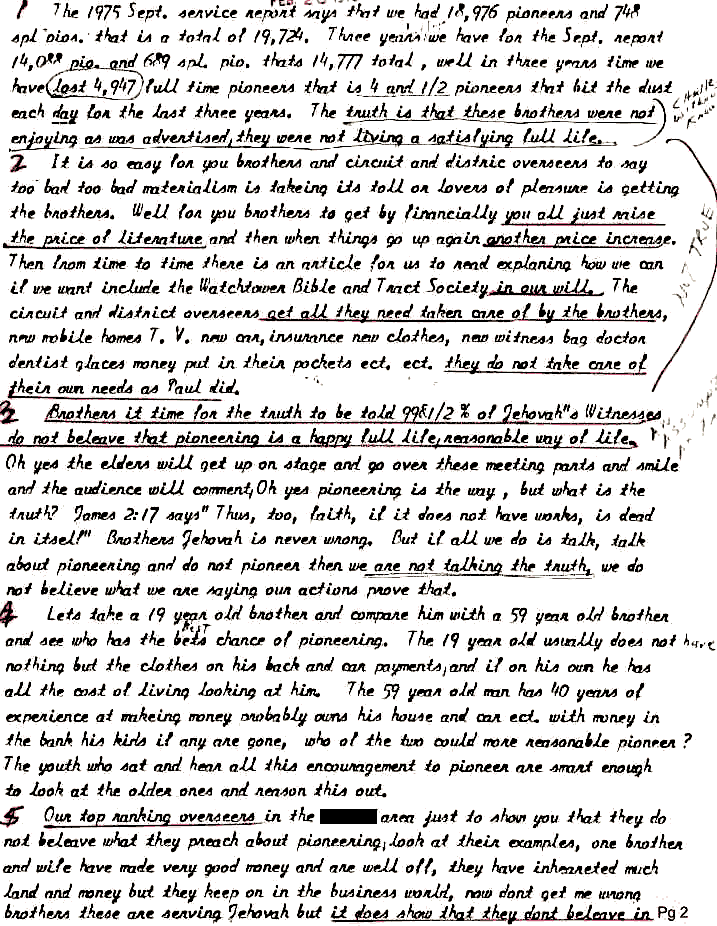 1 The 1975 Sept. service report says that we had 18,976 pioneers and 748
spl pios. that is a total of 19,724. Three years we have for the Sept. report
14,088 pio. and 689 spl. pio. thats 14,777 total, well in three years time we
have lost 4,947 full time pioneers that is 4 and 1/2 pioneers that bit the dust
each day for the last three years. The truth is that these brothers were not
enjoying as was advertised, they were not living a satisfying full life..
2 It is so easy for you brothers and circuit and distric overseers to say
too bad too bad materialism is takeing its toll or lovers of pleasure is getting
the brothers. Well for you brothers to get by financially you all just raise
the price of literature and then when things go up again another price increase.
NOT TRUE
Then from time to time there is an article for us to read explaning how we can
if we want include the Watchtower Bible and Tract Society in our will. The
circuit and district overseers get all they need taken care of by the brothers,
new mobile homes T. V. new car, insurance new clothes, new witness bag doctor
dentist glaces money put in their pockets ect. ect. they do not take care of
their own needs as Paul did.
3 Brothers it time for the truth to be told 99&1/2 % of Jehovah"s Witnesses
do not beleave that pioneering is a happy full life, reasonable way of life.
Oh yes the elders will get up on stage and go over these meeting parts and smile
and the audience will comment, Oh yes pioneering is the way , but what is the
truth? James 2:17 says" Thus, too, faith, if it does not have works, is dead
in itself" Brothers Jehovah is never wrong. But if all we do is talk, talk
about pioneering and do not pioneer then we are not talking the truth, we do
not believe what we are saying our actions prove that.
4 Lets take a 19 year old brother and compare him with a 59 year old brother
and see who has the bets BEST chance of pioneering. The 19 year old usually does not have
nothing but the clothes on his back and car payments, and if on his own he has
all the cost of living looking at him. The 59 year old man has 40 years of
experience at makeing money probably owns his house and car ect. with money in
the bank his kids if any are gone, who of the two could more reasonable pioneer ?
The youth who sat and hear all this encouragement to pioneer are smart enough
to look at the older ones and reason this out.
5 Our top ranking overseers in the area just to show you that they do
not beleave what they preach about pioneering, look at their examples, one brother
and wife have made very good money and are well off, they have inhereted much
land and money but they keep on in the business world, now dont get me wrong
brothers these are serving Jehovah but it does show that they dont beleave in Pg 2